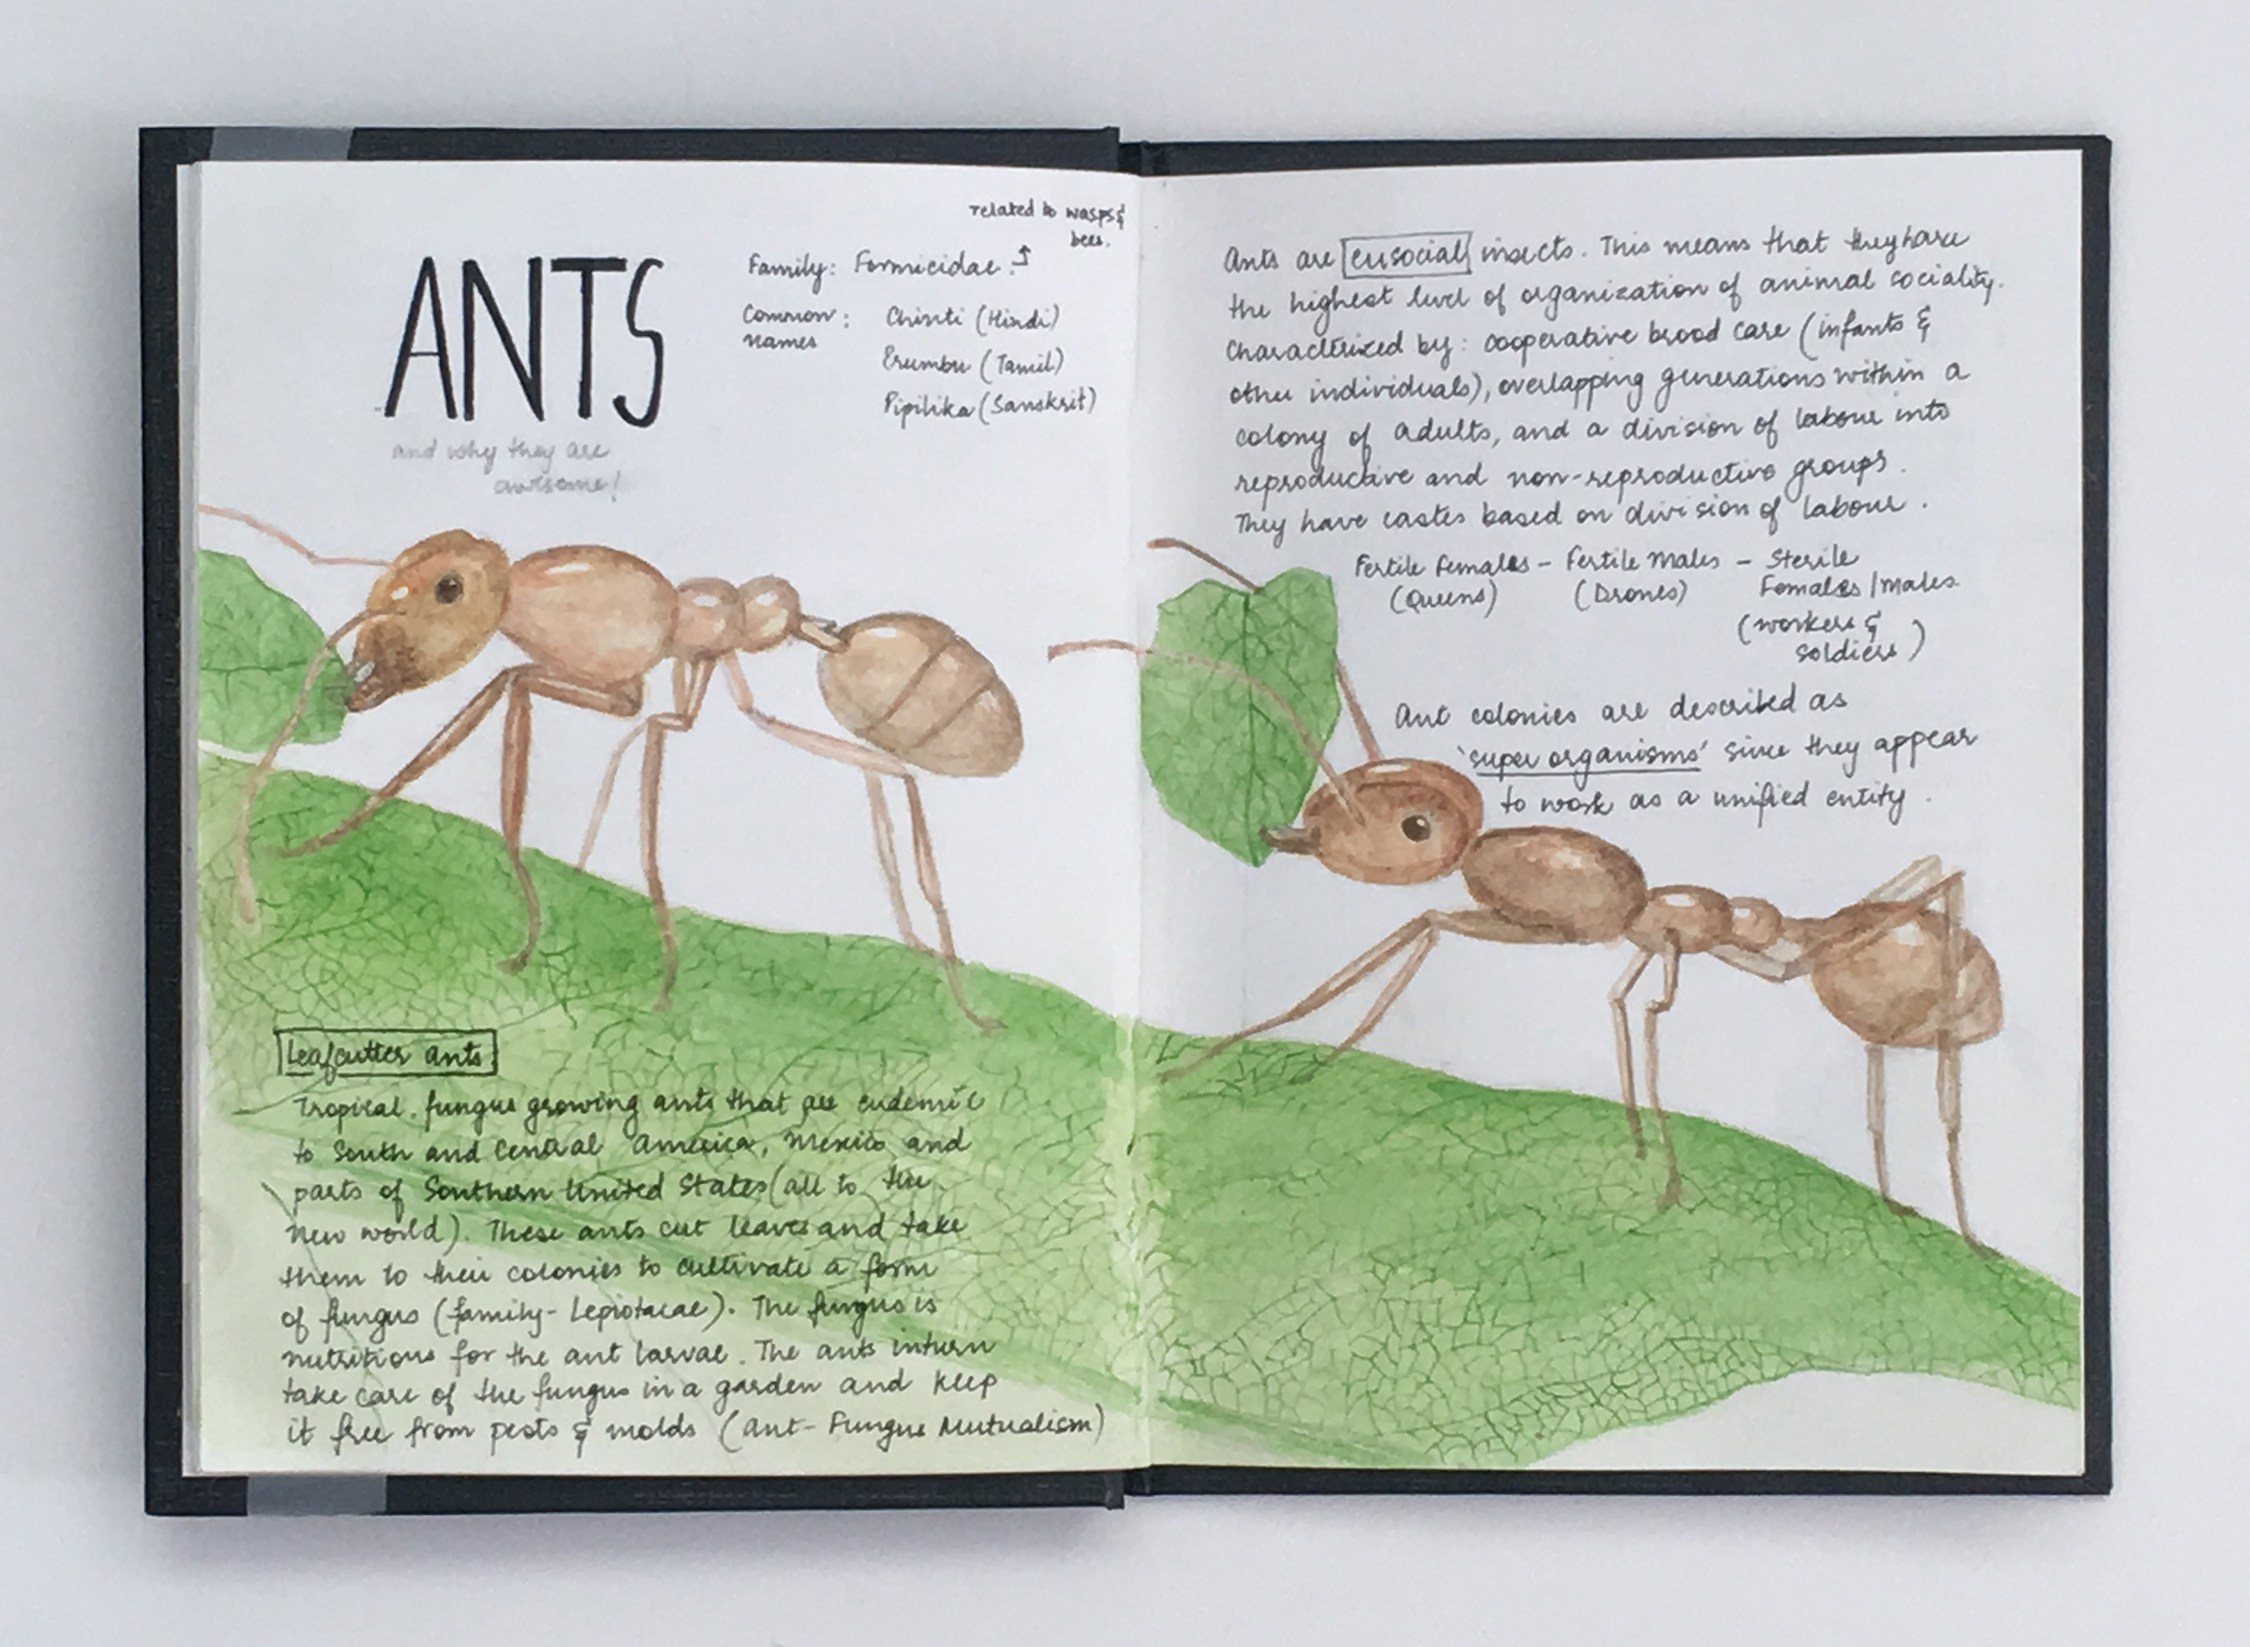 ANTS
and why they are
awesome!
related to wasps &
bees.
Family: Formicidae.
Common names: Chinti (Hindi)
Erumbu (Tamil)
Pipilika (Sanskrit)
Leafcutter ants
Tropical, fungus growing ants that are endemic
to South and Central America, Mexico and
parts of Southern United States (all to the
new world). These ants cut leaves and take
them to their colonies to cultivate a form
of fungus (family- Lepiotacae). The fungus is
nutritious for the ant larvae. The ants inturn
take care of the fungus in a garden and keep
it free from pests & molds (Ant- Fungus Mutualism)
Ants are eusocial insects. This means that they have
the highest level of organization of animal sociality.
Characterized by: cooperative brood care (infants &
other individuals), overlapping generations within a
colony of adults, and a division of labour into
reproductive and non-reproductive groups.
They have castes based on division of labour.
Fertile Females - Fertile Males - Sterile
(Queens) (Drones) Females/Males
(workers &
soldiers)
Ant colonies are described as
'super organisms' since they appear
to work as a unified entity.